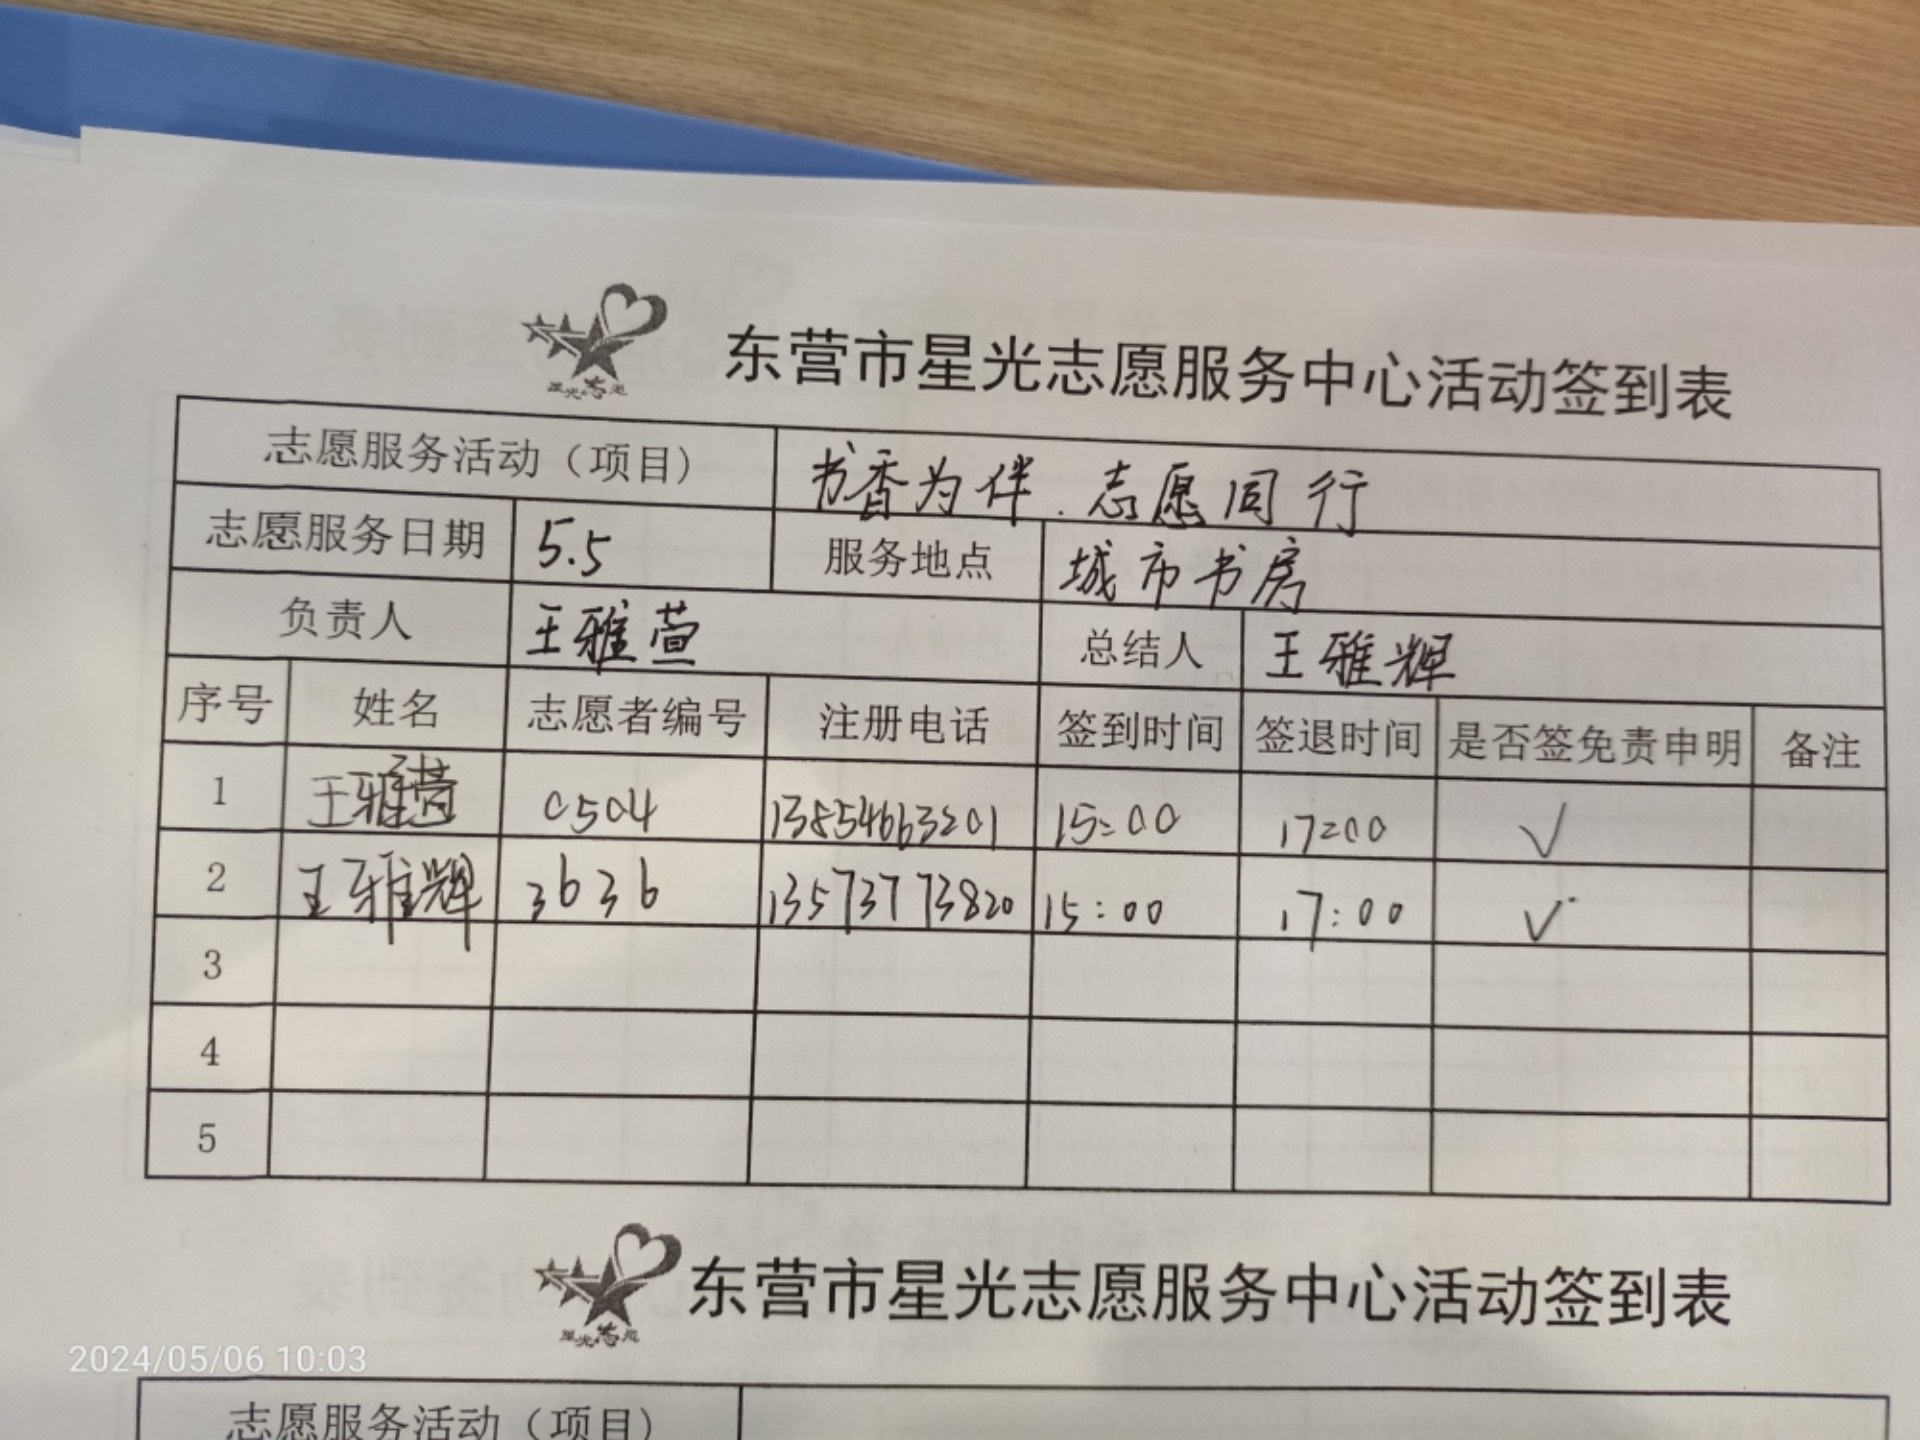 星光志愿
东营市星光志愿服务中心活动签到表
志愿服务活动（项目） 书香为伴.志愿同行
志愿服务日期 5.5 服务地点 城市书房
负责人 王雅萱 总结人 王雅辉
序号 姓名 志愿者编号 注册电话 签到时间 签退时间 是否签免责申明 备注
1 王雅萱 0504 13854663201 15:00 17:00 √
2 王雅辉 3636 13573773820 15:00 17:00 √
3
4
5
星光志愿
东营市星光志愿服务中心活动签到表
2024/05/06 10:03
志愿服务活动（项目）